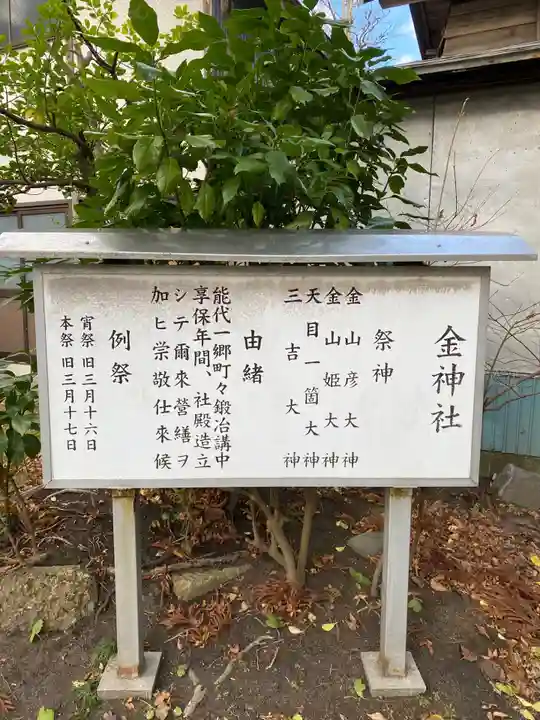 金神社
祭神
金山彦大神
金山姫大神
天目一箇大神
三吉大神
由緒
能代一郷町々鍛冶講中
享保年間、社殿造立
シテ爾来營繕ヲ
加ヒ崇敬仕来候
例祭
宵祭旧三月十六日
本祭旧三月十七日